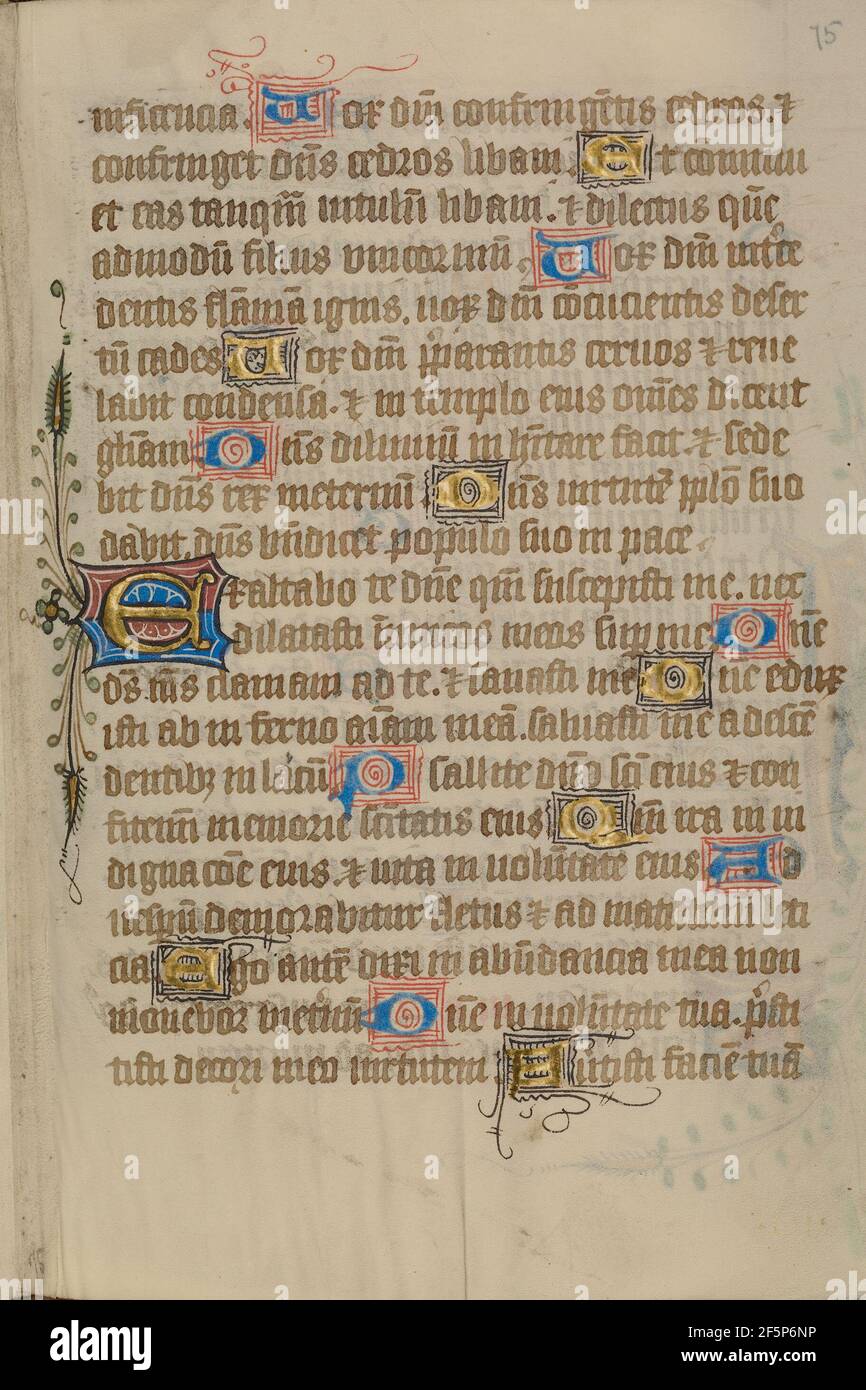 75
nificencia. Uox dm̄ confringētis cedros. ⁊
confringet dn̄s cedros libani. Et cōminu
et eas tanqm̄ uitulū libani. ⁊ dilectus que
admodū filius unicornium. Uox dm̄ interci
dentis flāmā ignis. uox dm̄ cōcucientis deser
tū cades Uox dm̄ p̄parantis ceruos ⁊ reue
labit condensa. ⁊ in templo eius om̄es dicent
głiam Dn̄s diluuiū inhītare facit. ⁊ sede
bit dn̄s rex ineternū Dn̄s uirtutē pplo suo
dabit. dn̄s bn̄dicet populo suo in pace
Exaltabo te dn̄e qm̄ suscepisti me. nec
dilatasti inimicos meos sup me Dn̄e
ds̄ ms̄ clamaui ad te. ⁊ sanasti me Dn̄e edux
isti ab inferno aīam meā. saluasti me a descē
dentibꝫ in lacū Psallite dn̄o scī eius ⁊ con
fitemī memorie scītatis eius Qm̄ ira in in
dignacōe eius. ⁊ uita in uolūtate eius Ad
uesperū demorabitur fletus ⁊ ad matutinū leti
cia Ego autē dixi in abūdancia mea non
mouebor ineternū Dn̄e in uolūtate tua. p̄sti
tisti decori meo uirtutem Auertisti faciē tuā
alamy
Image ID: 2F5P6NP
www.alamy.com